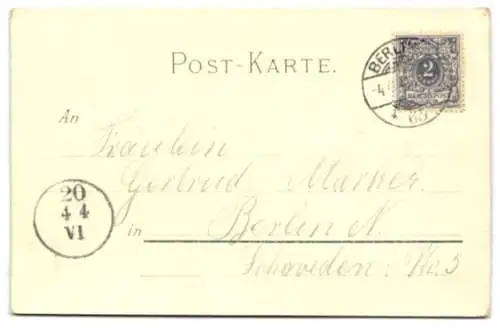 POST-KARTE.
BERLIN
-4
2
REICHSPOST
An
Fräulein
Gertrud Marner
in Berlin N.
Schweden: No. 5
20
4 4
VI